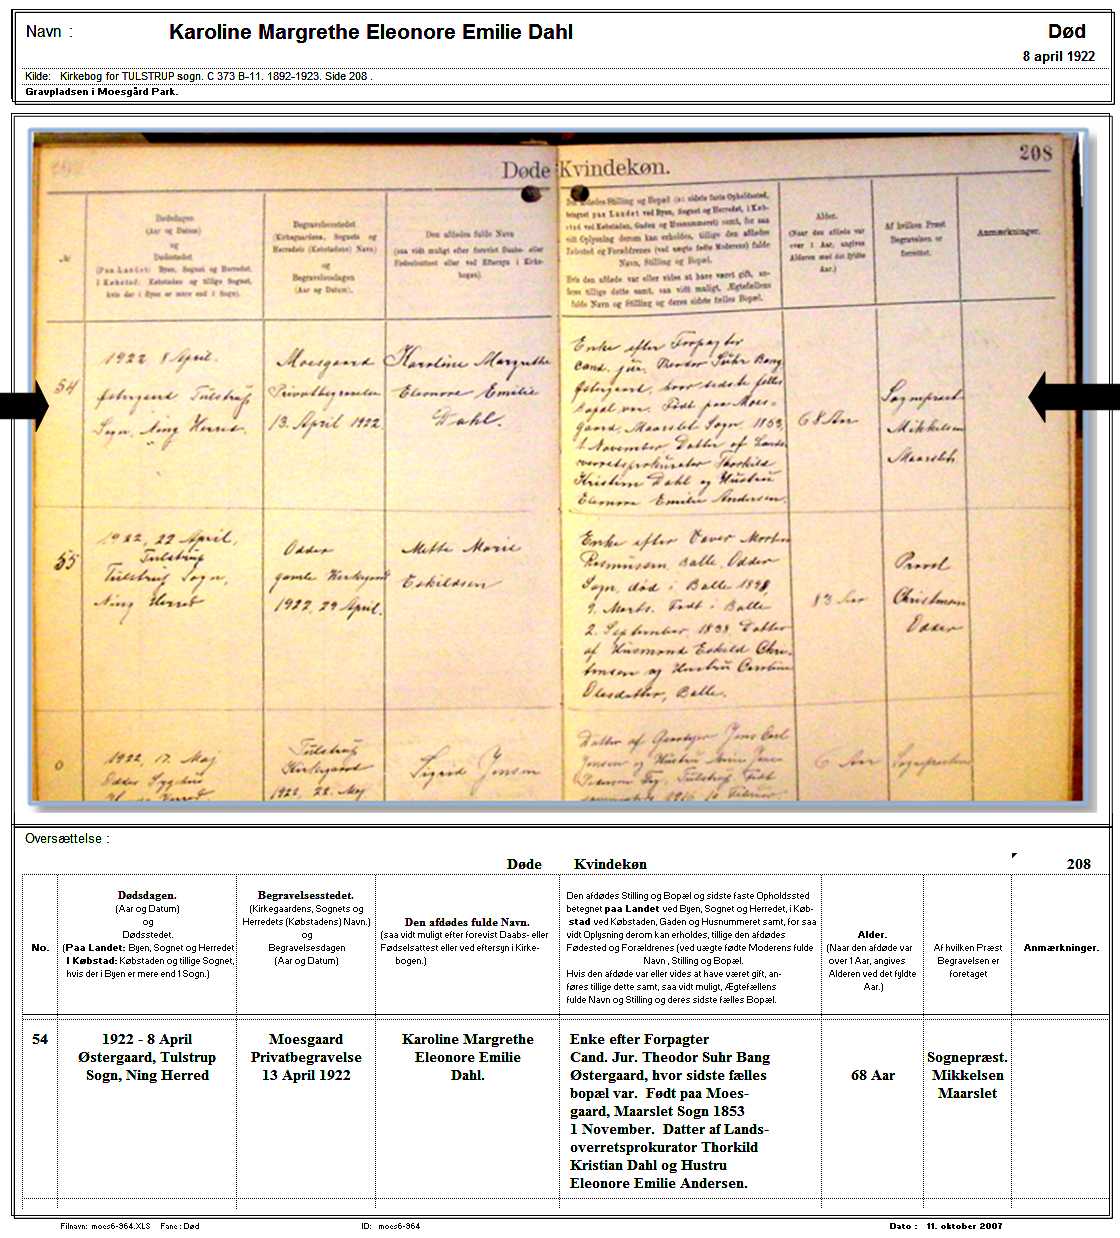 Navn : Karoline Margrethe Eleonore Emilie Dahl Død
8 april 1922
Kilde: Kirkebog for TULSTRUP sogn. C 373 B-11. 1892-1923. Side 208 .
Gravpladsen i Moesgård Park.
Døde Kvindekøn. 208
Dødsdagen
(Aar og Datum)
og
Dødsstedet.
(Paa Landet: Byen, Sognet og Herredet.
I Købstad: Købstaden og tillige Sognet,
hvis der i Byen er mere end 1 Sogn).
Begravelsesstedet
(Kirkegaardens, Sognets og
Herredets (Købstadens) Navn)
og
Begravelsesdagen
(Aar og Datum).
Den afdødes fulde Navn
(saa vidt muligt efter forevist Daabs- eller
Fødselsattest eller ved Eftersyn i Kirke-
bogen).
Den afdødes Stilling og Bopæl (o: sidste faste Opholdssted,
betegnet paa Landet ved Byen, Sognet og Herredet, i Køb-
stad ved Købstaden, Gaden og Husnummeret) samt, for saa
vidt Oplysning derom kan erholdes, tillige den afdødes
Fødested og Forældrene (ved uægte fødte Moderens) fulde
Navn, Stilling og Bopæl.
Hvis den afdøde var eller vides at have været gift, an-
føres tillige dette samt, saa vidt muligt, Ægtefællens
fulde Navn og Stilling og deres sidste fælles Bopæl.
Alder.
(Naar den afdøde var
over 1 Aar, angives
Alderen med det fyldte
Aar.)
Af hvilken Præst
Begravelsen er
forrettet.
Anmærkninger.
54
1922 8 April.
Østergaard Tulstrup
Sogn, Ning Herred.
Moesgaard
Privatbegravelse
13. April 1922.
Karoline Margrethe
Eleonore Emilie
Dahl.
Enke efter Forpagter
cand. jur. Theodor Suhr Bang
Østergaard, hvor sidste fælles
Bopæl var. Født paa Moes-
gaard, Maarslet Sogn, 1853,
1 November. Datter af Lands-
overretsprokurator Thorkild
Kristian Dahl og Hustru
Eleonore Emilie Andersen.
68 Aar
Sognepræst
Mikkelsen
Maarslet
55
1922, 22 April,
Tulstrup
Tulstrup Sogn,
Ning Herred
Odder
gamle Kirkegaard
1922, 29 April.
Mette Marie
Eskildsen
Enke efter Væver Morten
Rasmussen, Balle, Odder
Sogn, død i Balle
9. Marts. Født i Balle
2. September, 1838. Datter
af Husmand Eskild Chri-
stensen og Hustru Caroline
Olesdatter, Balle.
83 Aar
Provst
Christensen
Odder
1922, 17. Maj
Odder
Herred
Tulstrup
Kirkegaard
1922, 22. Maj
Sigrid Jensen
Datter af Jens Carl
Jensen og Hustru
Tulstrup. Født
6 Aar
Sognepræsten
Oversættelse :
Døde Kvindekøn 208
No.
Dødsdagen.
(Aar og Datum)
og
Dødsstedet.
(Paa Landet: Byen, Sognet og Herredet
I Købstad: Købstaden og tillige Sognet,
hvis der i Byen er mere end 1 Sogn.)
Begravelsesstedet.
(Kirkegaardens, Sognets og
Herredets (Købstadens) Navn.)
og
Begravelsesdagen
(Aar og Datum)
Den afdødes fulde Navn.
(saa vidt muligt efter forevist Daabs- eller
Fødselsattest eller ved eftersyn i Kirke-
bogen.)
Den afdødes Stilling og Bopæl og sidste faste Opholdssted
betegnet paa Landet ved Byen, Sognet og Herredet, i Køb-
stad ved Købstaden, Gaden og Husnummeret samt, for saa
vidt Oplysning derom kan erholdes, tillige den afdødes
Fødested og Forældrenes (ved uægte fødte Moderens fulde
Navn , Stilling og Bopæl.
Hvis den afdøde var eller vides at have været gift, an-
føres tillige dette samt, saa vidt muligt, Ægtefællens
fulde Navn og Stilling og deres sidste fælles Bopæl.
Alder.
(Naar den afdøde var
over 1 Aar, angives
Alderen ved det fyldte
Aar.)
Af hvilken Præst
Begravelsen er
foretaget
Anmærkninger.
54
1922 - 8 April
Østergaard, Tulstrup
Sogn, Ning Herred
Moesgaard
Privatbegravelse
13 April 1922
Karoline Margrethe
Eleonore Emilie
Dahl.
Enke efter Forpagter
Cand. Jur. Theodor Suhr Bang
Østergaard, hvor sidste fælles
bopæl var. Født paa Moes-
gaard, Maarslet Sogn 1853
1 November. Datter af Lands-
overretsprokurator Thorkild
Kristian Dahl og Hustru
Eleonore Emilie Andersen.
68 Aar
Sognepræst.
Mikkelsen
Maarslet
Filnavn: moes6-964.XLS Fane: Død ID: moes6-964 Dato : 11. oktober 2007